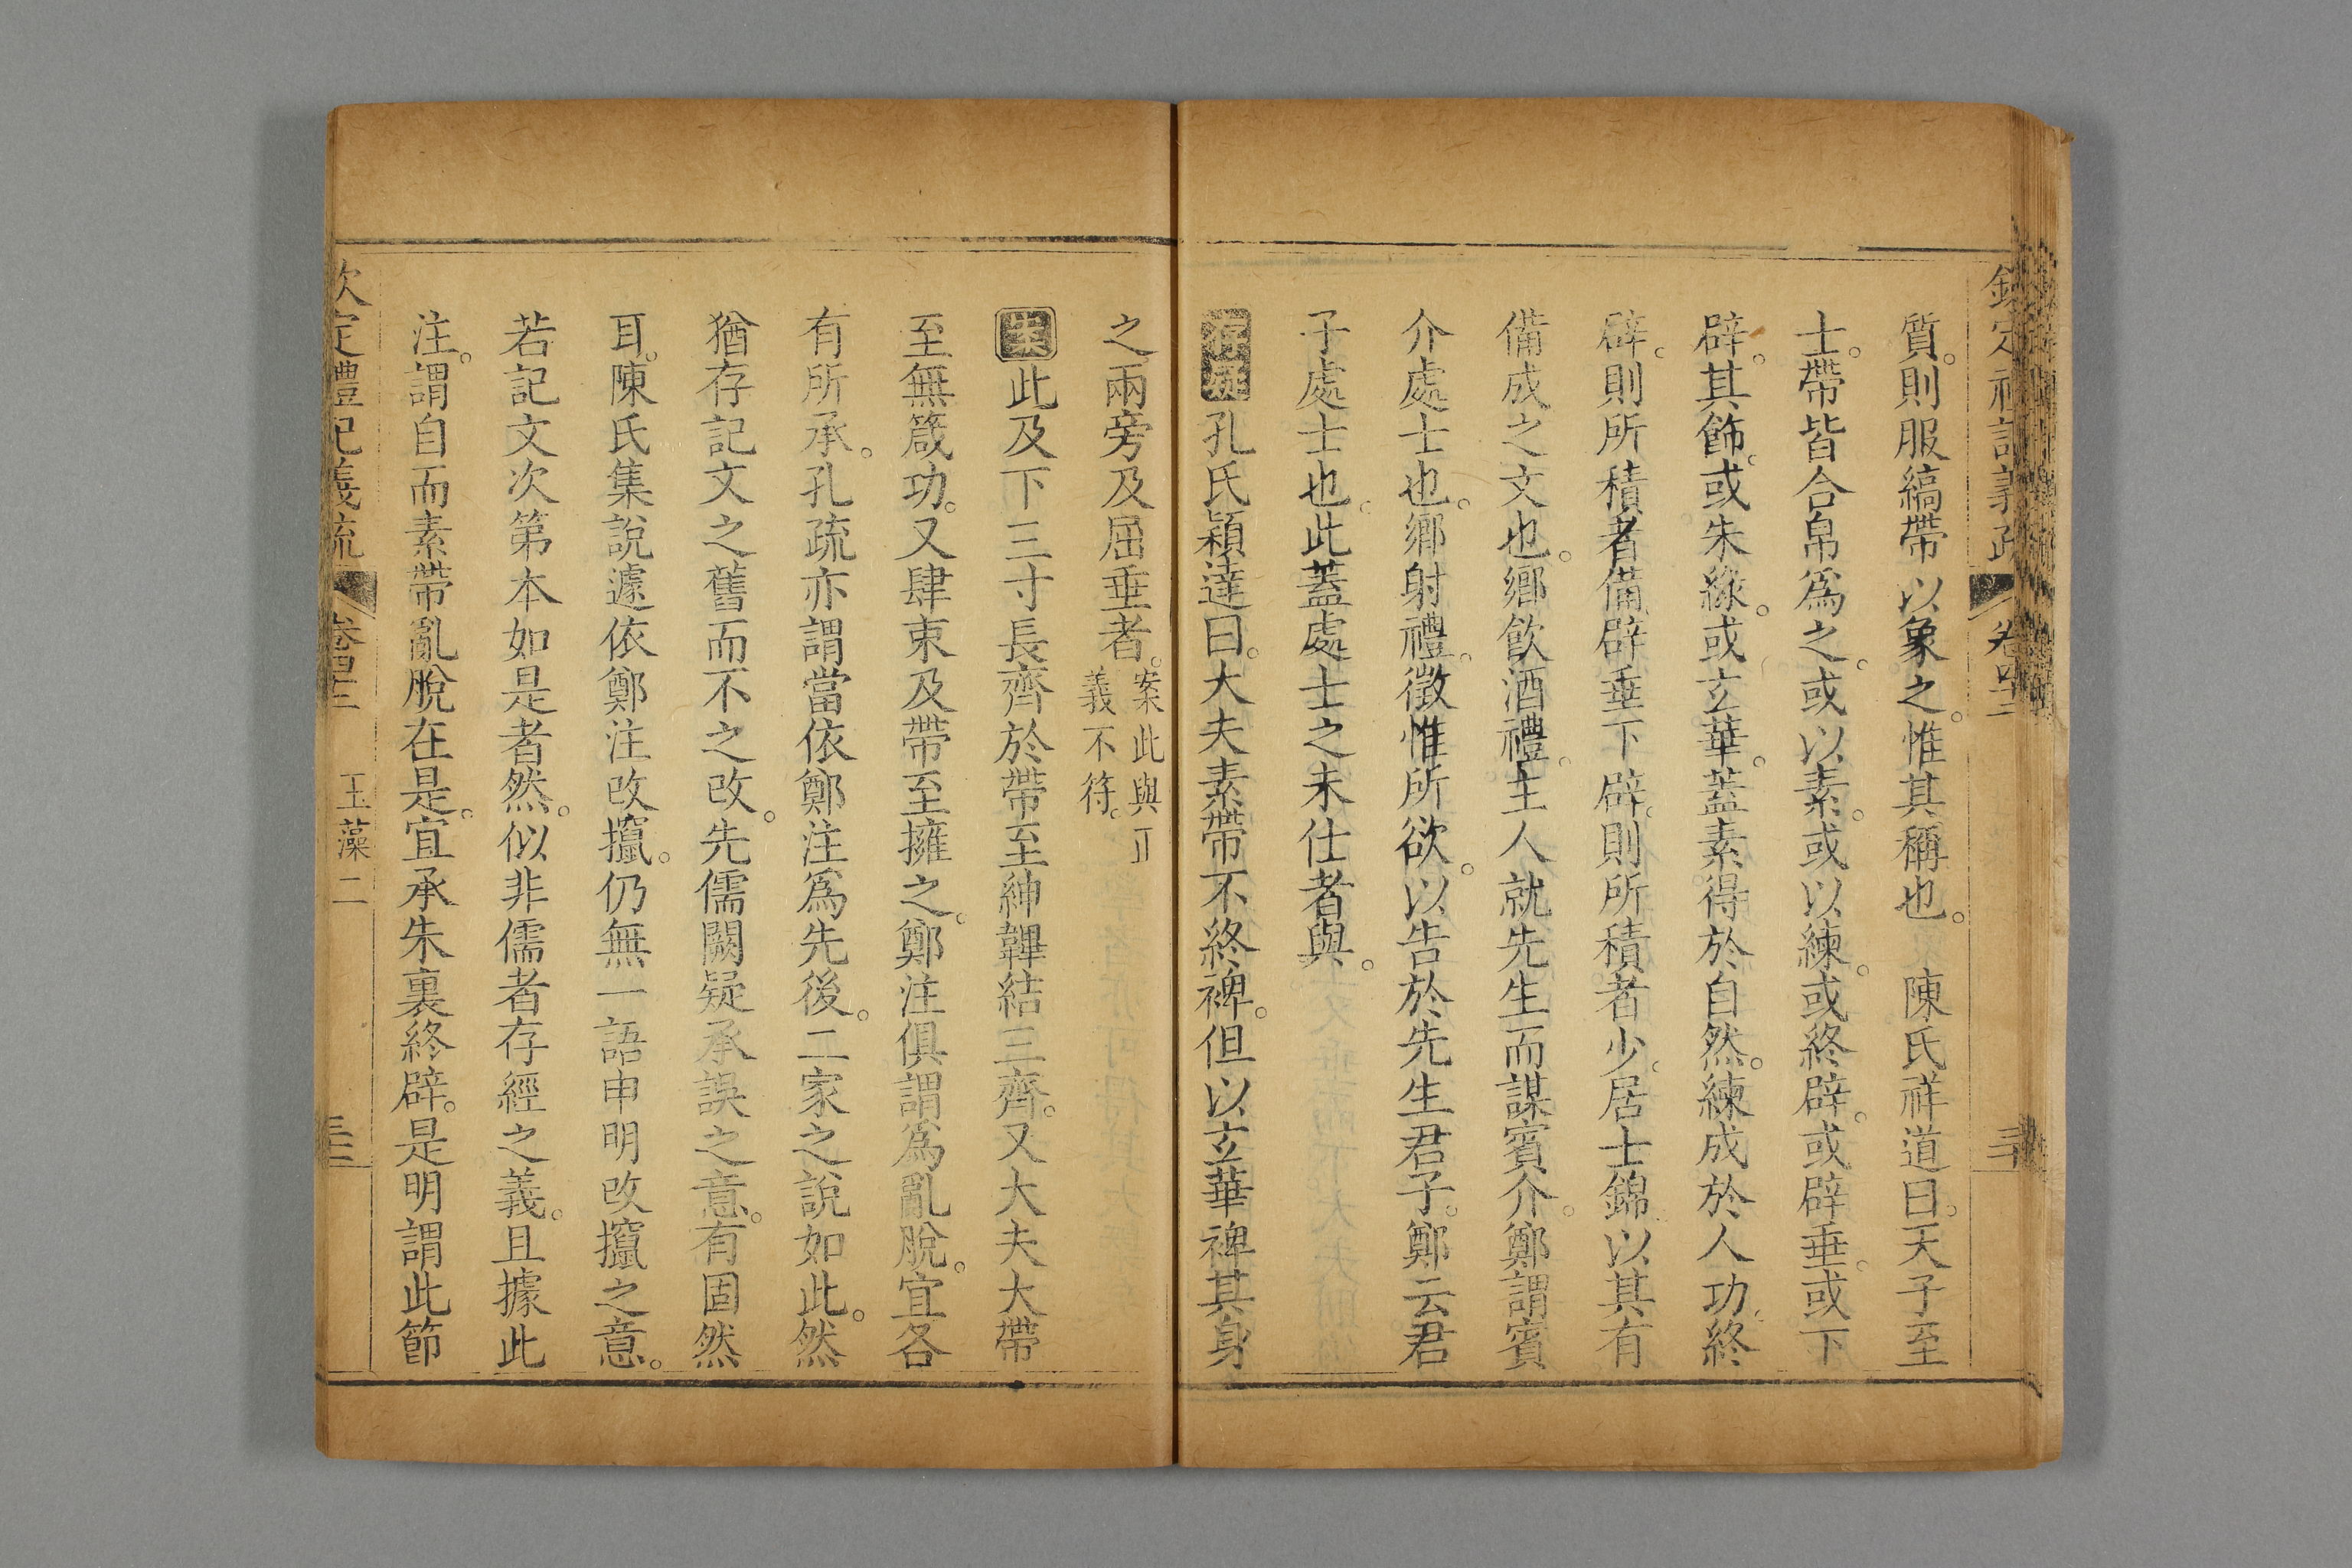 質。則服縞帶以象之。惟其稱也。陳氏祥道曰。天子至
士。帶皆合帛爲之。或以素。或以練。或終辟。或辟垂。或下
辟。其飾。或朱綠。或玄華。蓋素得於自然。練成於人功。終
辟。則所積者備。辟垂下辟。則所積者少。居士錦以其有
備成之文也。鄉飲酒禮。主人就先生而謀賓介。鄭謂賓
介處士也。鄉射禮。徵惟所欲。以告於先生君子。鄭云君
子處士也。此蓋處士之未仕者與。
存疑孔氏穎達曰。大夫素帶不終裨。但以玄華裨其身
之兩旁及屈垂者。案此與
義不符。
案此及下三寸長齊於帶至紳韠結三齊。又大夫大帶
至無箴功。又肆束及帶至擁之。鄭注俱謂爲亂脫。宜各
有所承。孔疏亦謂當依鄭注爲先後。二家之說如此。然
猶存記文之舊而不之改。先儒闕疑承誤之意。有固然
耳。陳氏集說遽依鄭注改竄。仍無一語申明改竄之意。
若記文次第本如是者然。似非儒者存經之義。且據此
注。謂自而素帶亂脫在是。宜承朱裏終辟。是明謂此節
欽定禮記義疏 卷四十二 玉藻二